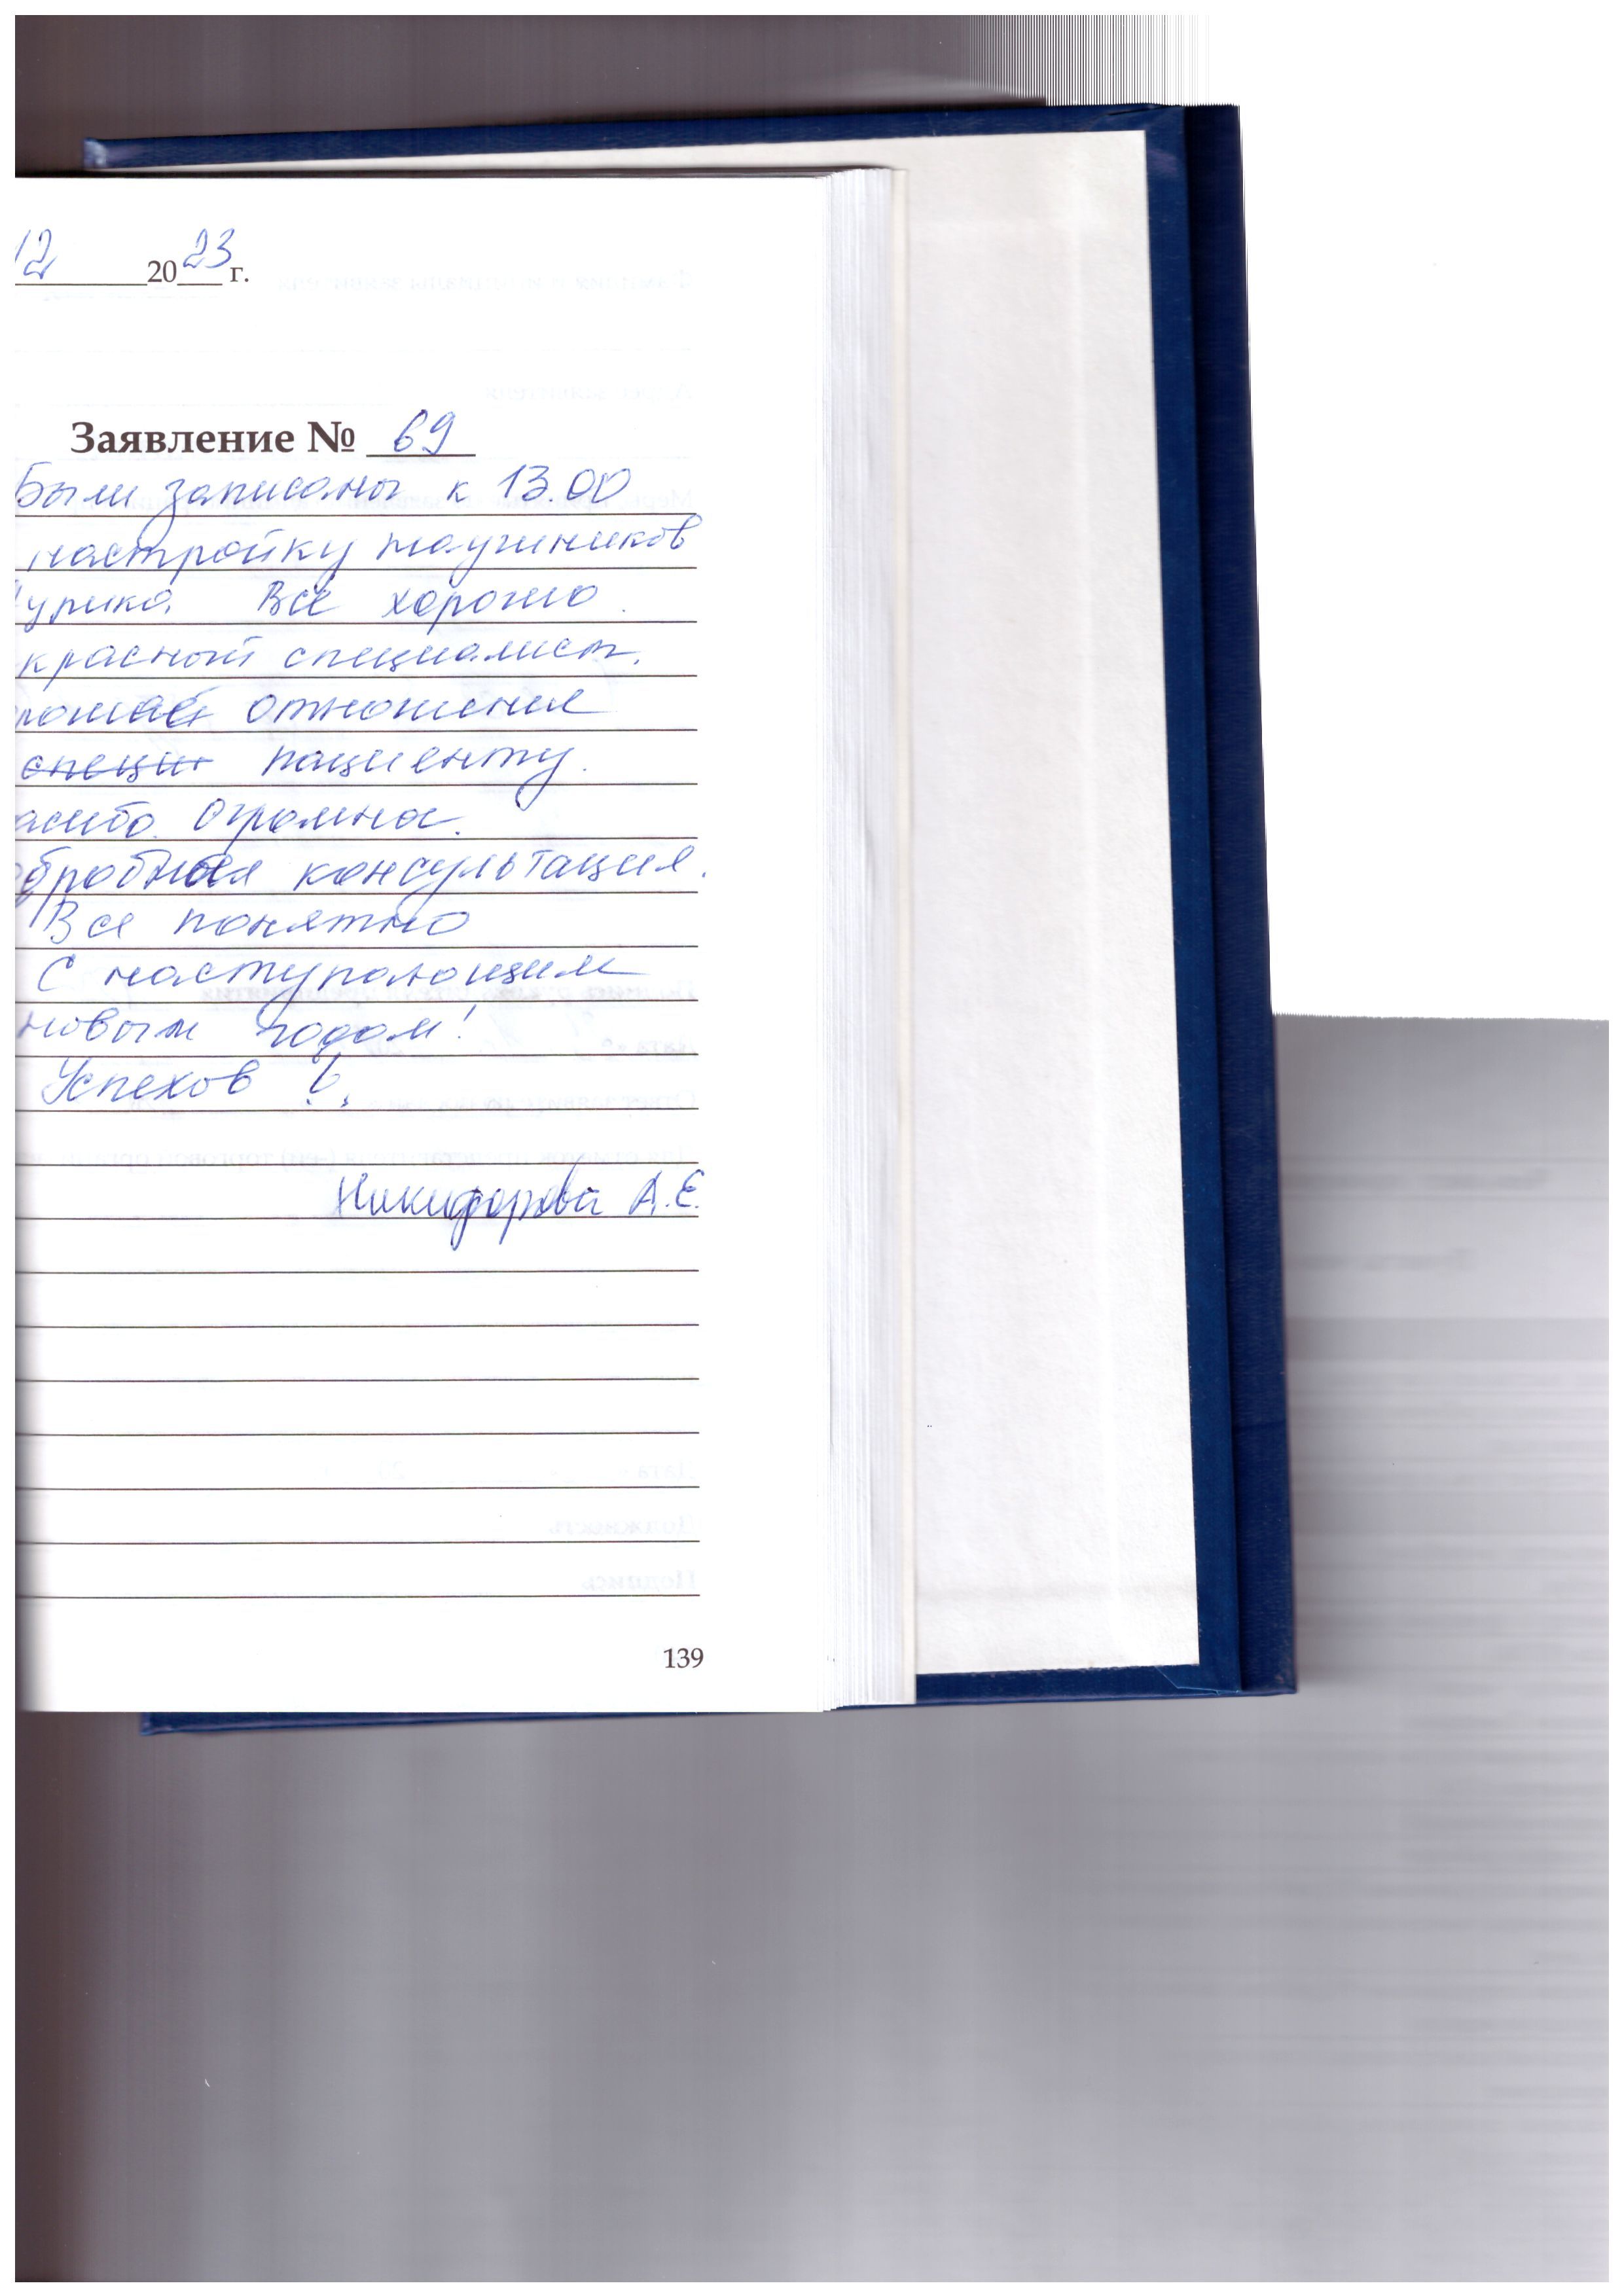 12 2023 г.
Заявление № 69
Были записаны к 13.00
настройку наушников
Все хорошо.
красный специалист.
отношение
специ пациенту.
асибо огромное.
консультация.
Все понятно
С наступающим
новым годом!
Успехов !
Никифорова А.Е.
139